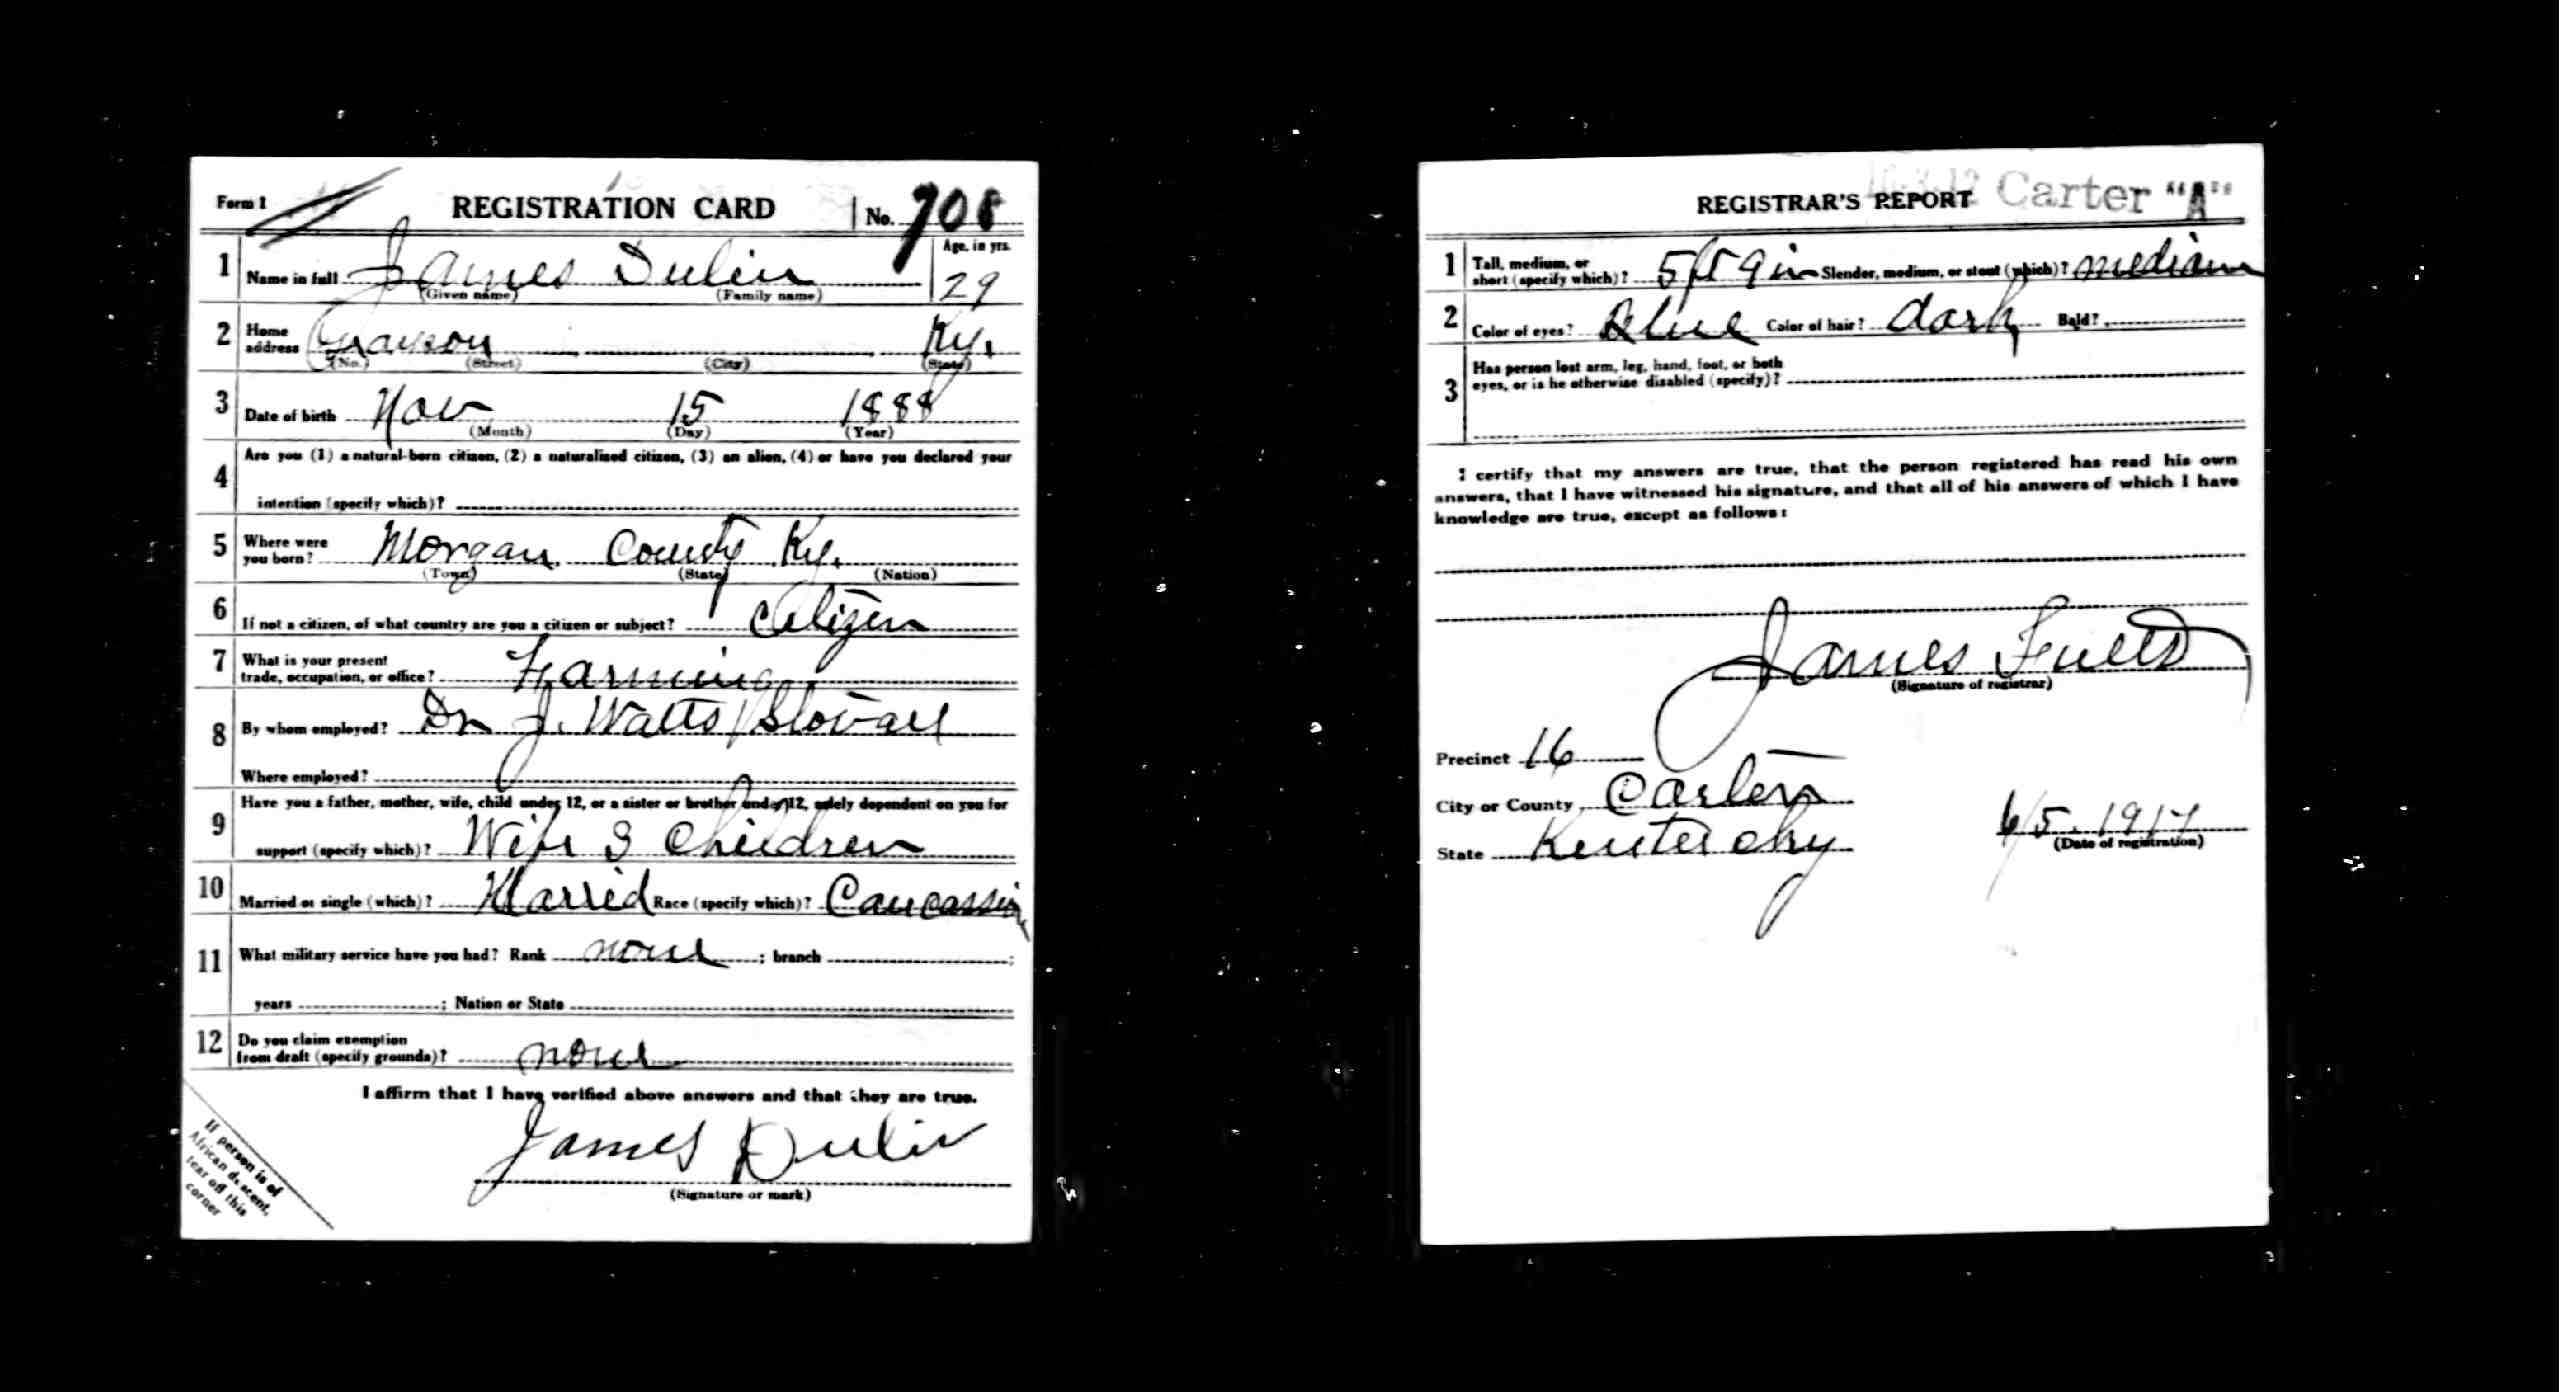 Form 1 REGISTRATION CARD No. 708
1 Name in full James Dulin Age, in yrs. 29
(Given name) (Family name)
2 Home address Grayson Ky.
(No.) (Street) (City) (State)
3 Date of birth Nov 15 1888
(Month) (Day) (Year)
4 Are you (1) a natural-born citizen, (2) a naturalized citizen, (3) an alien, (4) or have you declared your
intention (specify which)?
5 Where were you born? Morgan County Ky.
(Town) (State) (Nation)
6 If not a citizen, of what country are you a citizen or subject? Citizen
7 What is your present
trade, occupation, or office? Farming
8 By whom employed? Dr J. Watts Stovall
Where employed?
9 Have you a father, mother, wife, child under 12, or a sister or brother under 12, solely dependent on you for
support (specify which)? Wife 3 Children
10 Married or single (which)? Marrid Race (specify which)? Caucassian
11 What military service have you had? Rank none ; branch ;
years ; Nation or State
12 Do you claim exemption
from draft (specify grounds)? none
I affirm that I have verified above answers and that they are true.
James Dulin
(Signature or mark)
If person is of
African descent,
tear off this
corner
Carter "A"
REGISTRAR'S REPORT
1 Tall, medium, or
short (specify which)? 5 ft 9 in Slender, medium, or stout (which)? medium
2 Color of eyes? Blue Color of hair? dark Bald?
3 Has person lost arm, leg, hand, foot, or both
eyes, or is he otherwise disabled (specify)?
I certify that my answers are true, that the person registered has read his own
answers, that I have witnessed his signature, and that all of his answers of which I have
knowledge are true, except as follows:
James Fults
(Signature of registrar)
Precinct 16
City or County Carter
State Kentucky 6/5 - 1917
(Date of registration)